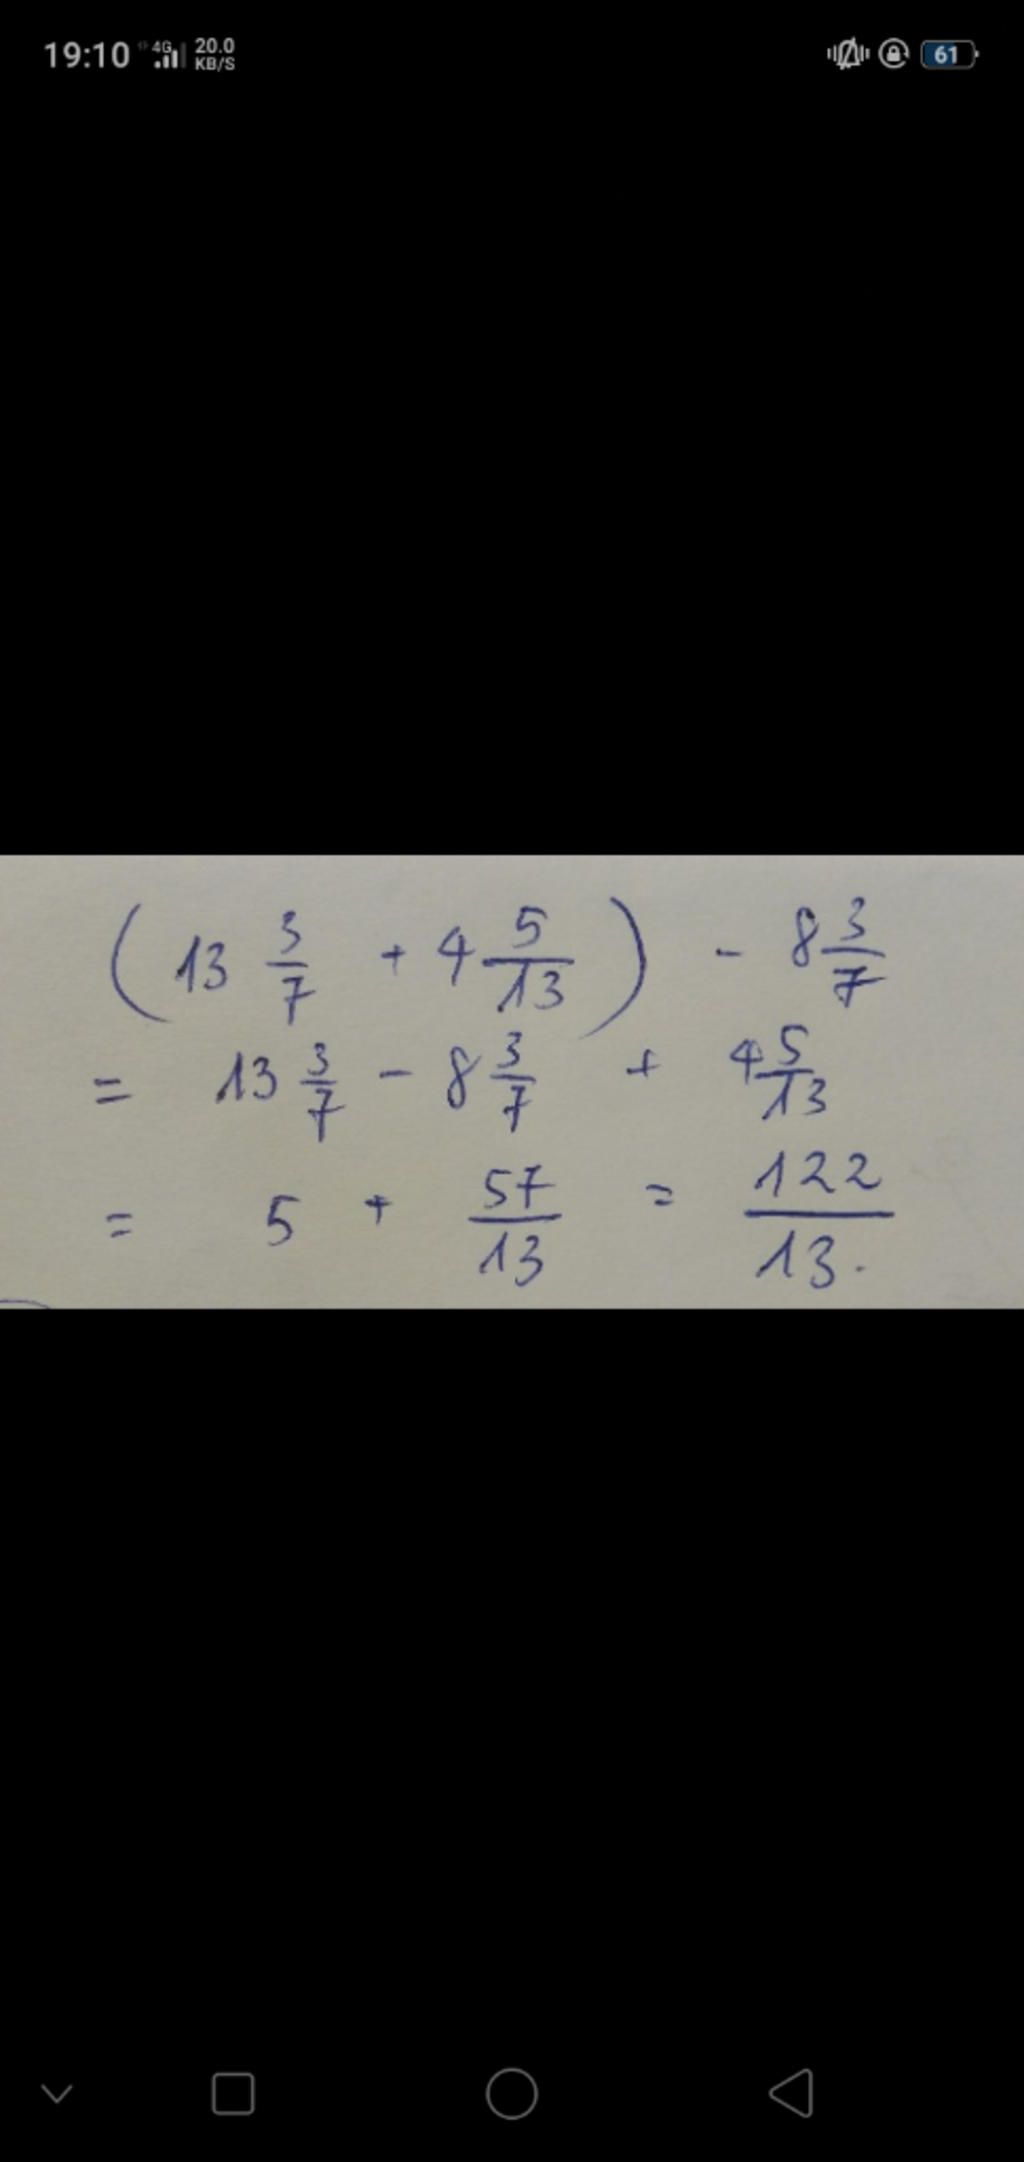 19:10 4G 20.0 KB/S 61
(13 3/7 + 4 5/13) - 8 3/7
= 13 3/7 - 8 3/7 + 4 5/13
= 5 + 57/13 = 122/13.